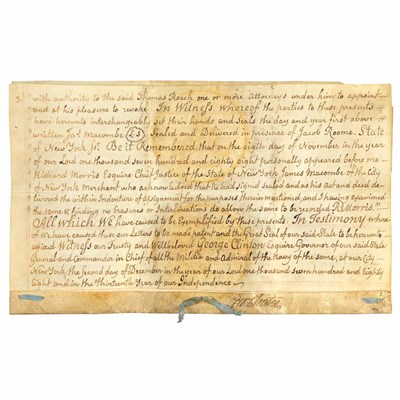 3. with authority to the said Thomas Roach one or more Attorneys under him to appoint
and at his pleasure to revoke In Witness whereof the parties to these presents
have hereunto interchangeably set their hands and Seals the day and year first above
written Jas. Macombe (LS) Sealed and Delivered in presence of Jacob Roome. State
of New York ss. Be it Remembered that on the eighth day of November in the year
of our Lord one thousand seven hundred and eighty eight personally appeared before me
Richard Morris Esquire Chief Justice of the State of New York James Macombe of the City
of New York Merchant who acknowledged that he had signed sealed and as his act and deed de
livered the within Indenture of Assignment for the purposes therein mentioned, and I having examined
the same & finding no Erasures or Interlineations do allow the same to be recorded R Morris."
All which We have caused to be Exemplified by these presents. In Testimony where
of We have caused these our Letters to be made patent and the Great Seal of our said State to be hereunto
affixed Witness our Trusty and Welbeloved George Clinton Esquire Governor of our said State
General and Commander in Chief of all the Militia and Admiral of the Navy of the same; at our City
New York, the second day of December in the year of our Lord one thousand seven hundred and Eighty
Eight and in the Thirteenth Year of our Independence